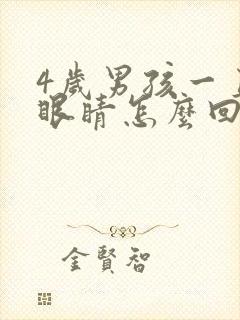 4歲男孩一
眼睛怎麼回
金賢智